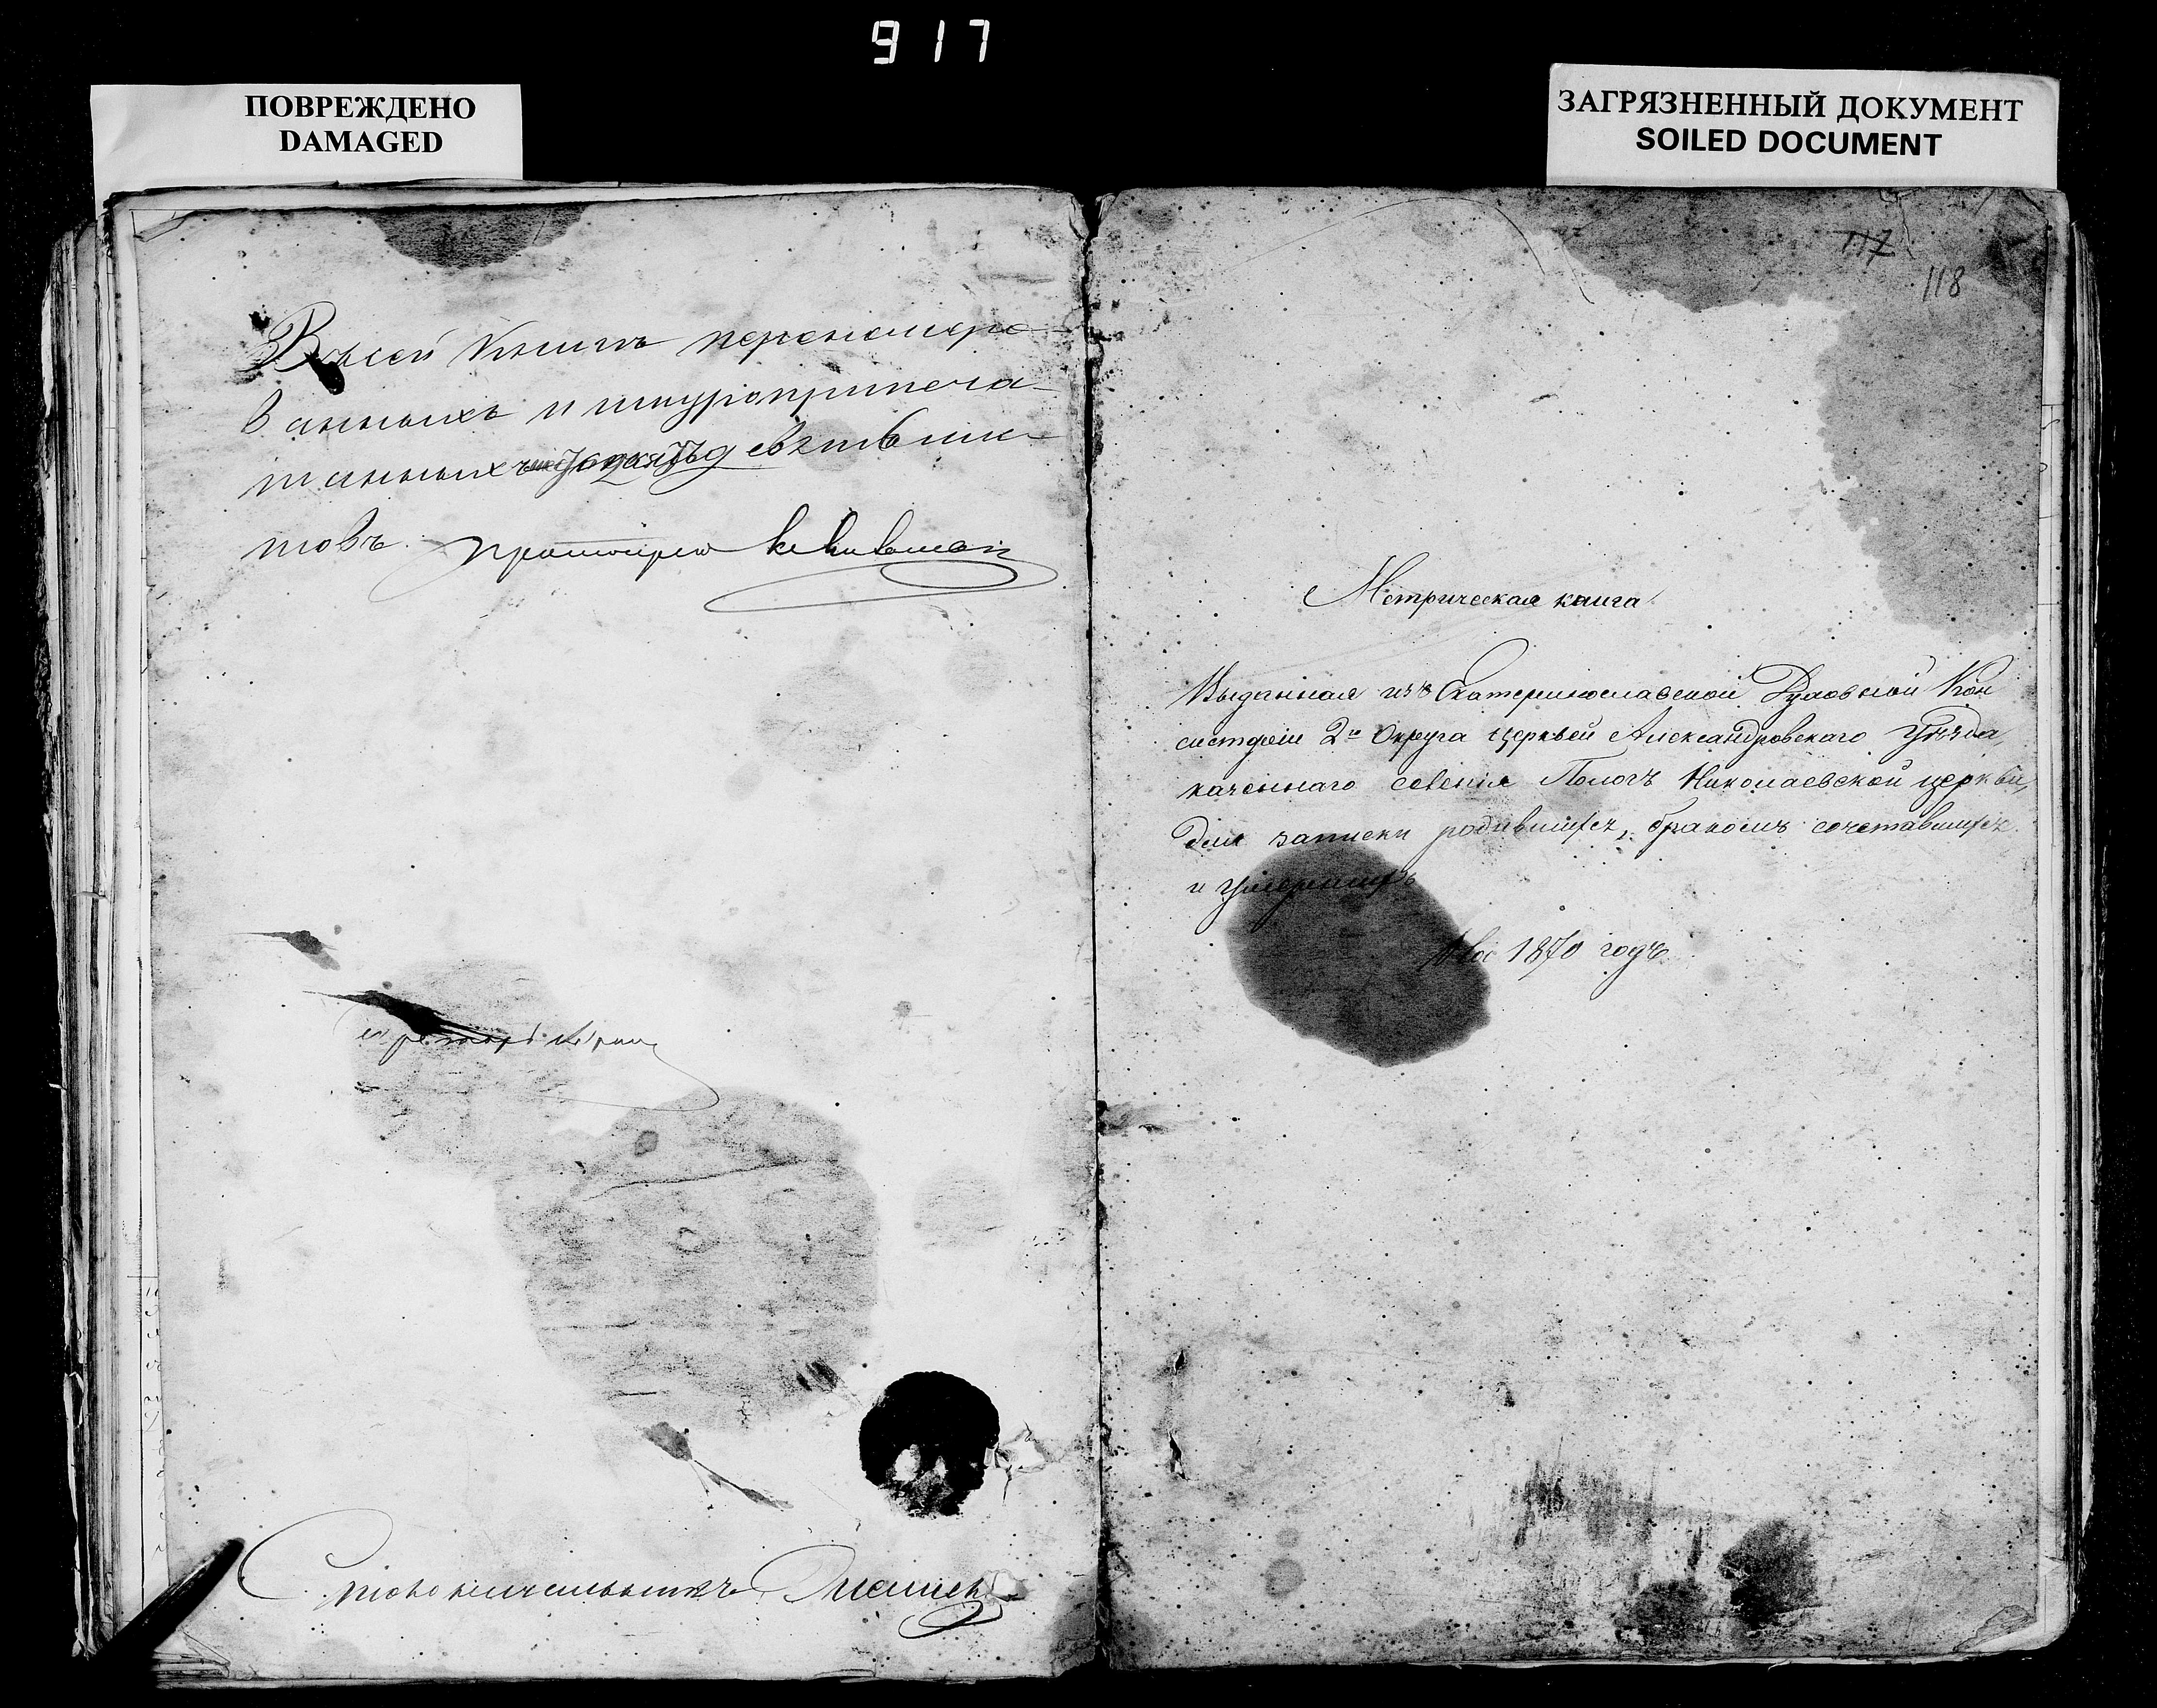 917
ПОВРЕЖДЕНО
DAMAGED
ЗАГРЯЗНЕННЫЙ ДОКУМЕНТ
SOILED DOCUMENT
Въ сей Книгѣ перенумеро-
ванныхъ и шнуропripеча-
танныхъ девять лис-
товъ. Протоiерей
Секретарь
Столоначальникъ
117
118
Метрическая книга
Выданная изъ Екатеринославской Духовной Кон
систорiи 2го Округа церквей Александровскаго Уѣзда,
казеннаго селенiя Пологъ Николаевской церкви,
для записки родившихся, бракомъ сочетавшихся
и умершихъ
На 1870 годъ